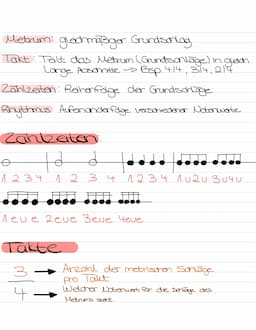 Metrum: gleichmäßiger Grundschlag
Takt: Teilt das Metrum (Grundschläge) in gleich
lange Abschnitte → Bsp. 4/4, 3/4, 2/4
Zählzeiten: Reihenfolge der Grundschläge
Rhythmus: Aufeinanderfolge verschiedener Notenwerte
Zählzeiten
1 2 3 4 1 2 3 4 1 2 3 4 1u2u3u4u
1eue 2eue 3eue 4eue
Takte
3 → Anzahl der metrischen Schläge
pro Takt
4 → Welcher Notenwert für die Schläge des
Metrums steht